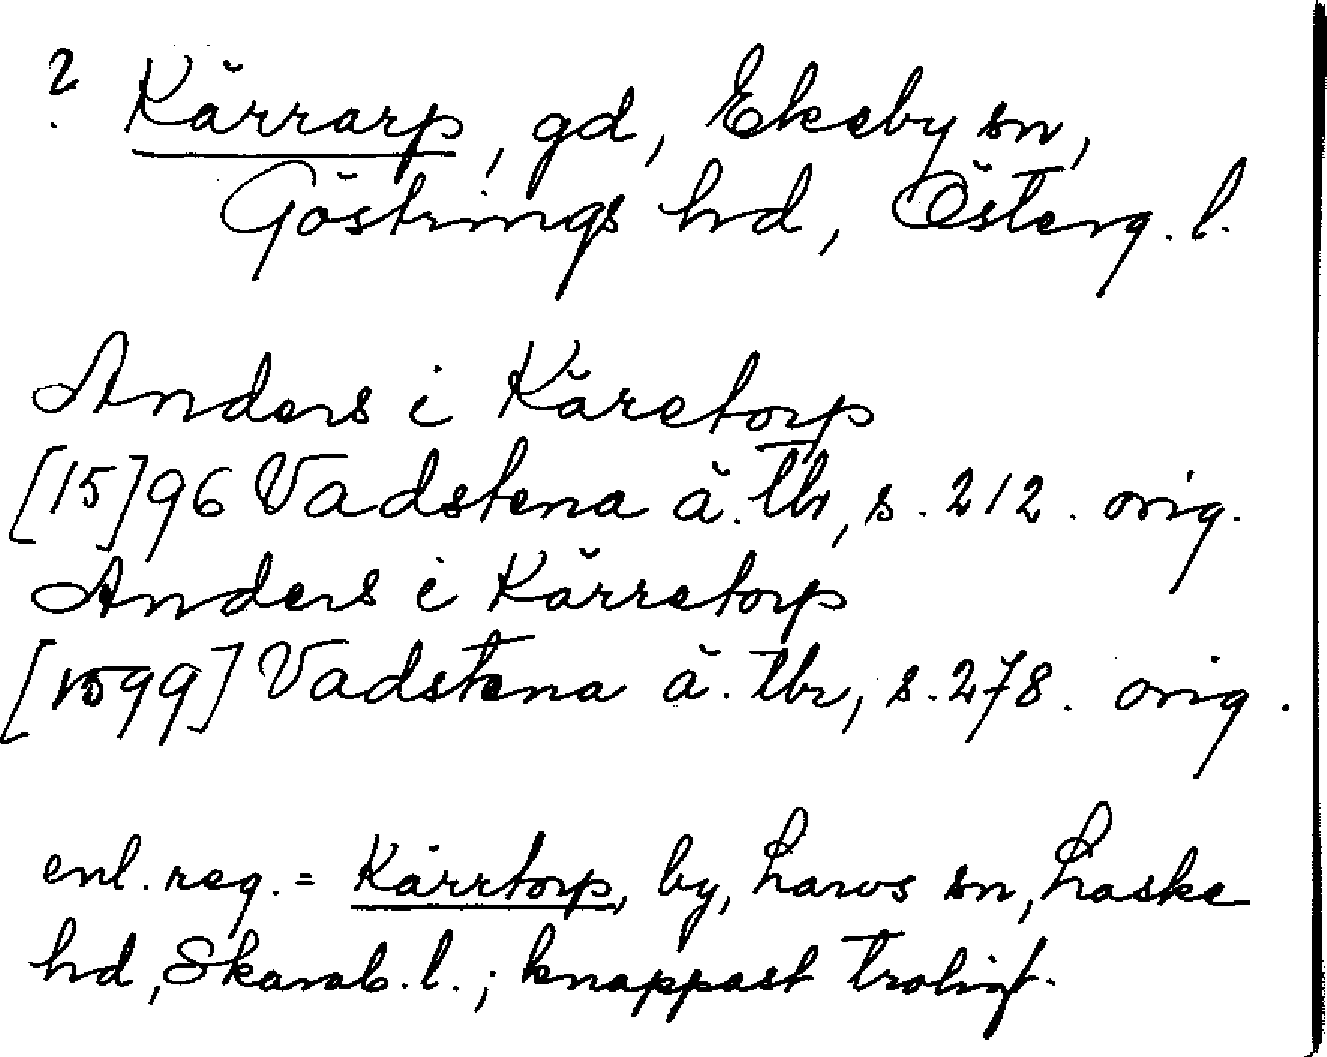 ? Kärrarp, gd, Ekeby sn,
Göstrings hd, Österg. l.
Anders i Käretorp
[15]96 Vadstena ä. tbr, s. 212. orig.
Anders i Kärretorp
[1599] Vadstena ä. tbr, s. 278. orig.
enl. reg. = Kärrtorp, by, Larvs sn, Laske
hd, Skarab. l.; knappast troligt.